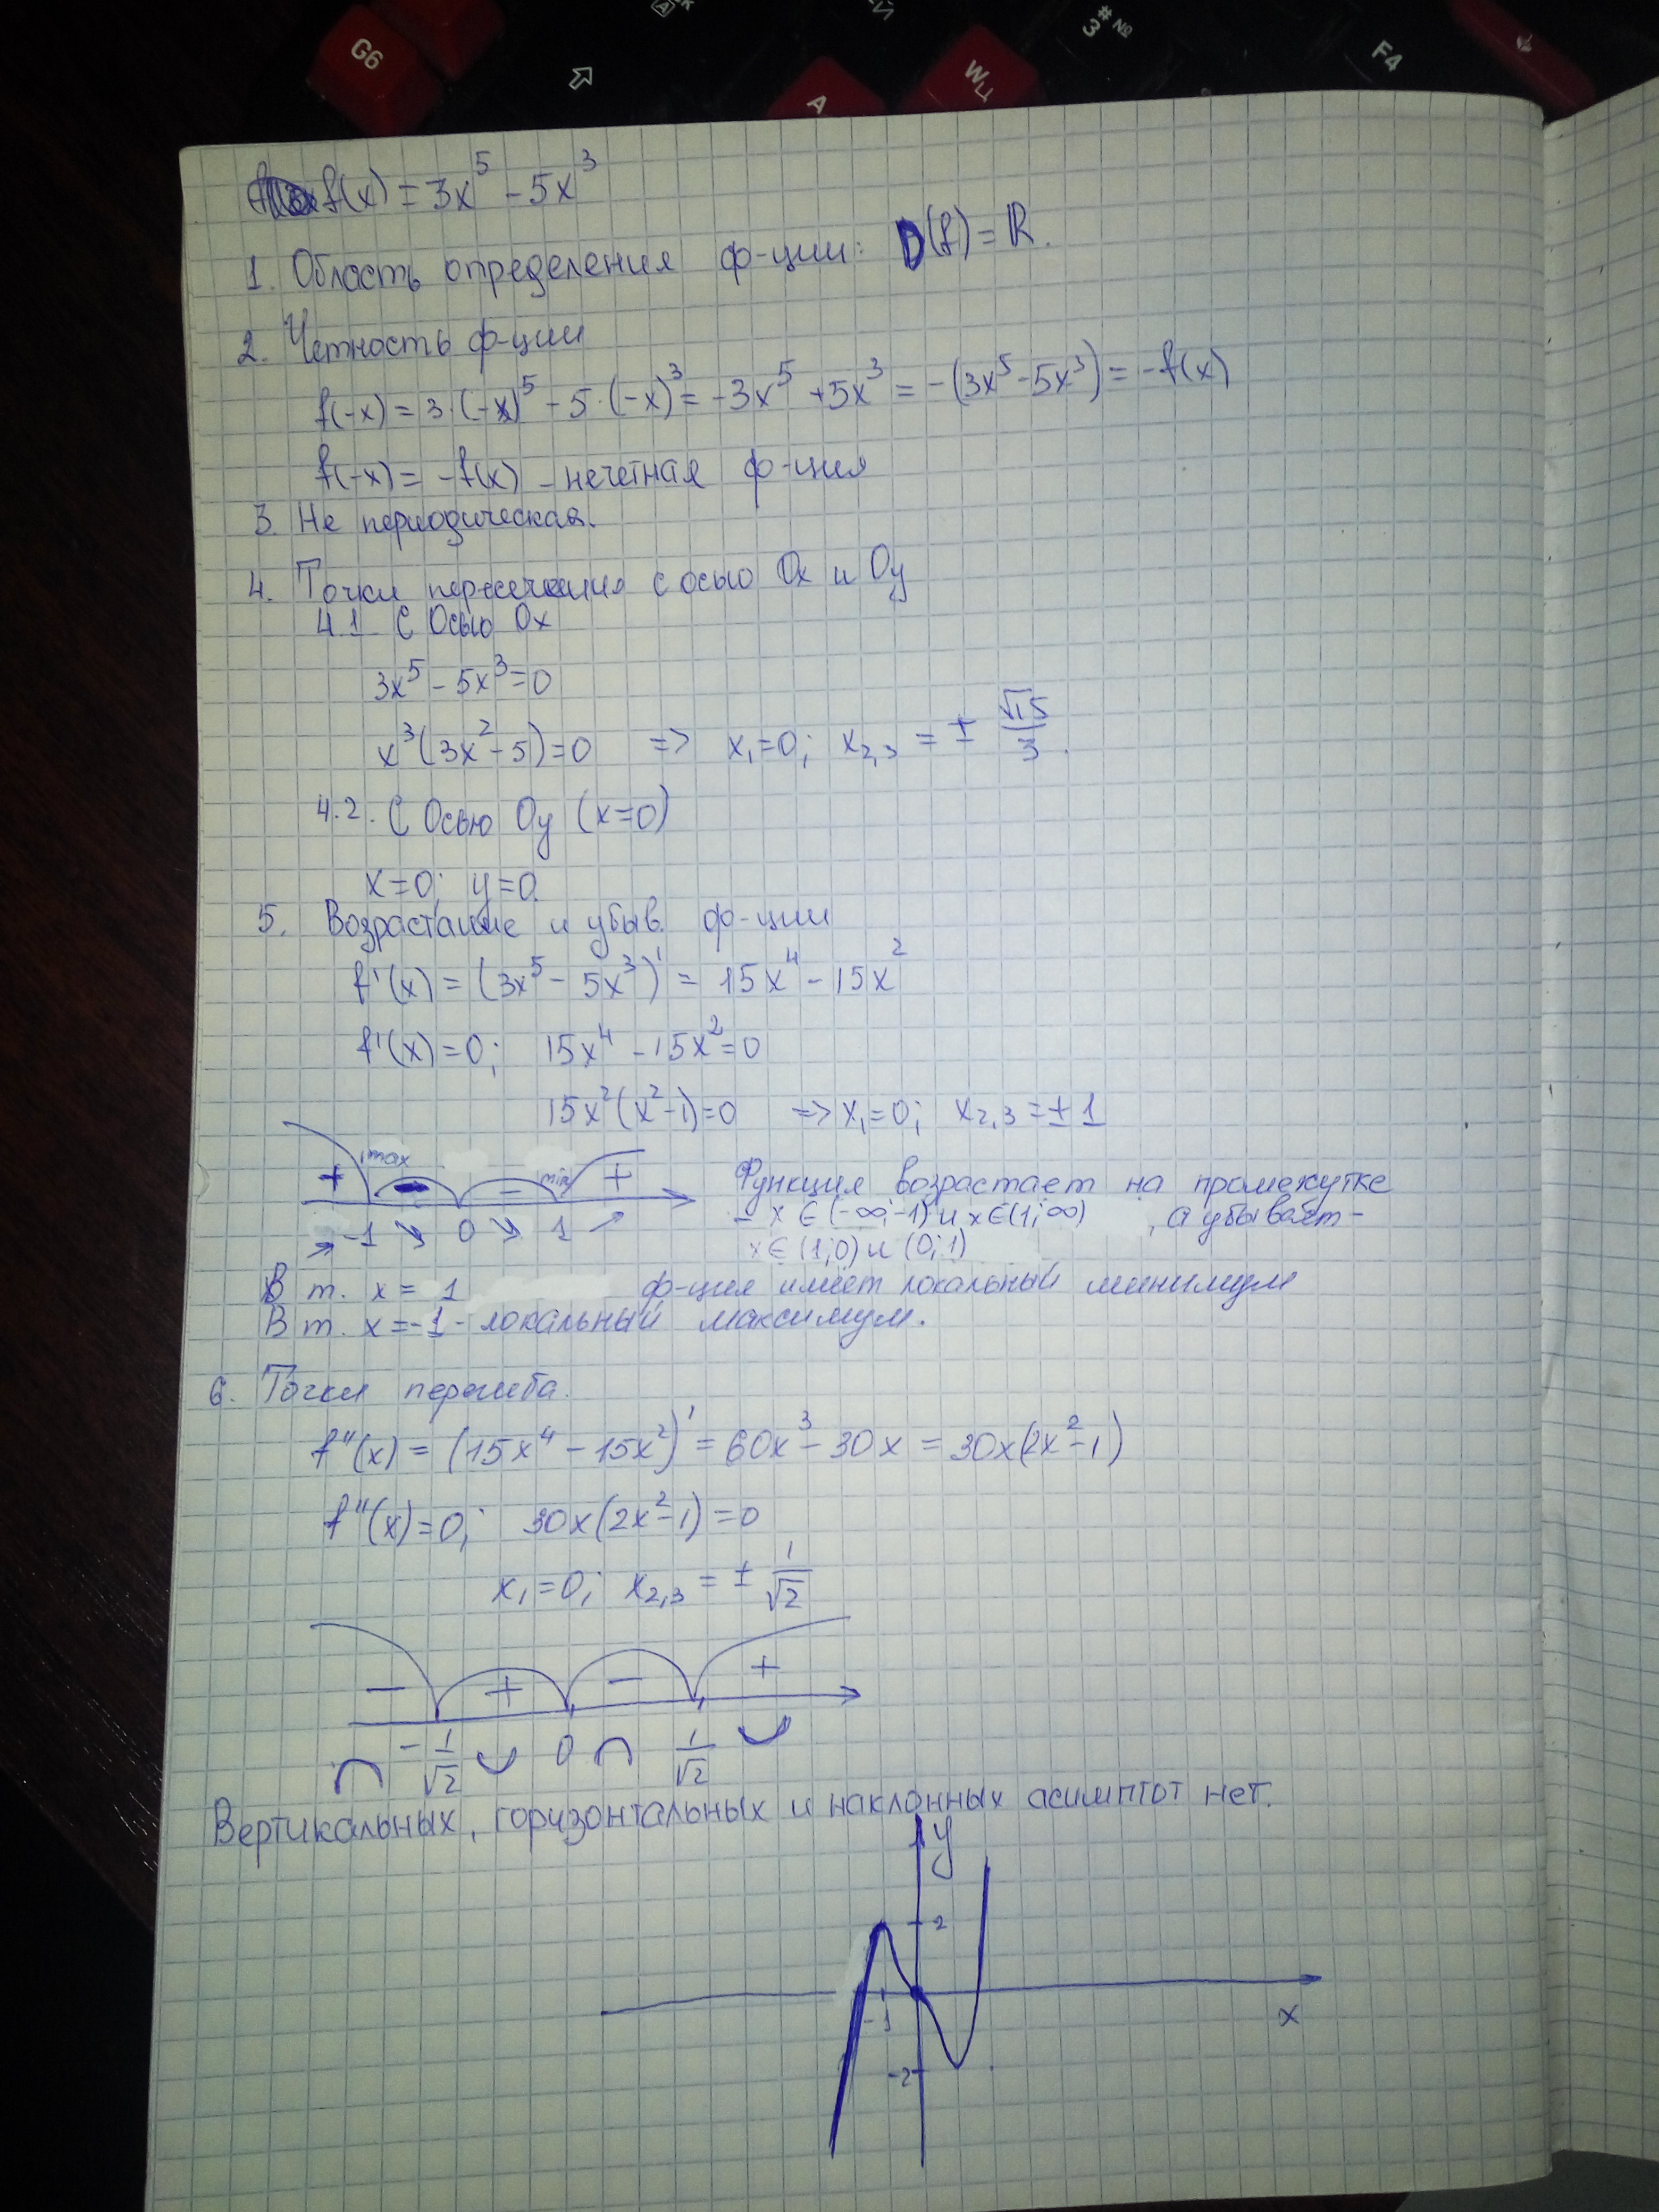 G6
A
W Ц
3 # №
F4
f(x) = 3x⁵ - 5x³
1. Область определения ф-ции: D(f) = ℝ.
2. Четность ф-ции
f(-x) = 3·(-x)⁵ - 5·(-x)³ = -3x⁵ + 5x³ = -(3x⁵ - 5x³) = -f(x)
f(-x) = -f(x) - нечетная ф-ция
3. Не периодическая.
4. Точки пересечения с осью Ox и Oy
4.1 С Осью Ox
3x⁵ - 5x³ = 0
x³(3x² - 5) = 0 => x₁ = 0; x₂,₃ = ± √15/3.
4.2. С Осью Oy (x=0)
x = 0; y = 0.
5. Возрастание и убыв. ф-ции
f'(x) = (3x⁵ - 5x³)' = 15x⁴ - 15x²
f'(x) = 0; 15x⁴ - 15x² = 0
15x²(x² - 1) = 0 => x₁ = 0; x₂,₃ = ± 1
+ max - - min +
-1 0 1
Функция возрастает на промежутке
- x ∈ (-∞; -1) и x ∈ (1; ∞), а убывает -
x ∈ (1; 0) и (0; 1)
В т. x = 1 ф-ция имеет локальный минимум
В т. x = -1 - локальный максимум.
6. Точки перегиба.
f''(x) = (15x⁴ - 15x²)' = 60x³ - 30x = 30x(2x² - 1)
f''(x) = 0; 30x(2x² - 1) = 0
x₁ = 0; x₂,₃ = ± 1/√2
- + - +
-1/√2 0 1/√2
Вертикальных, горизонтальных и наклонных асимптот нет.
y
2
-1
x
-2